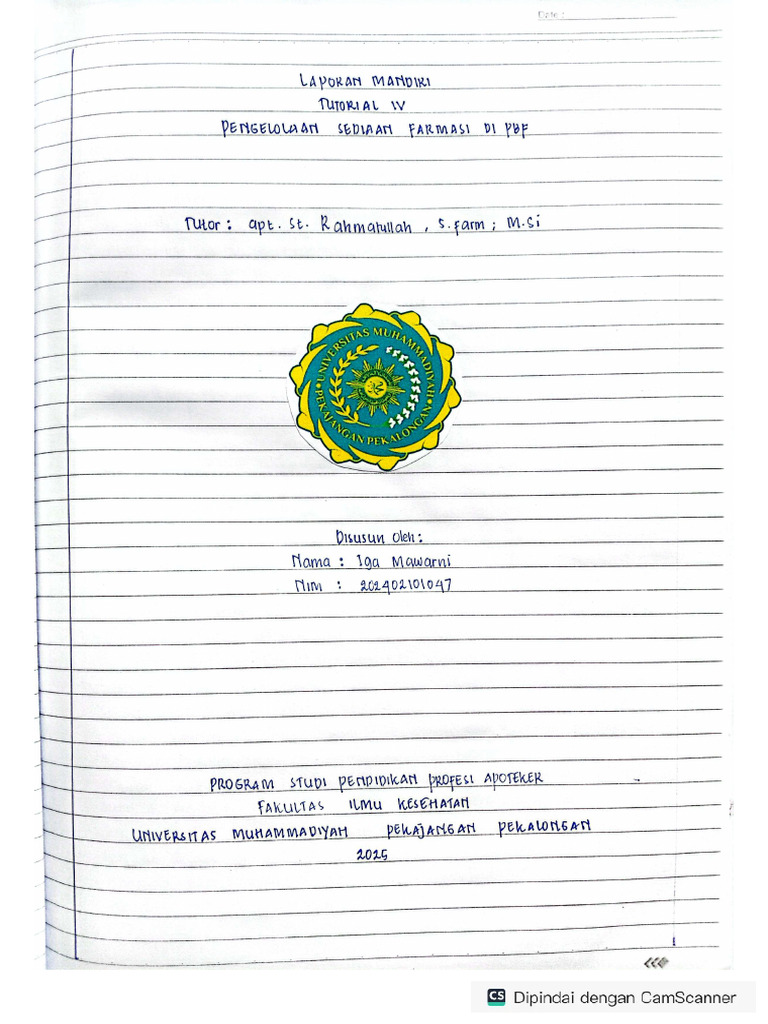 Date :
LAPORAN MANDIRI
TUTORIAL IV
PENGELOLAAN SEDIAAN FARMASI DI PBF
Tutor : apt. St. Rahmatullah , S.farm ; M.Si
UNIVERSITAS MUHAMMADIYAH
PEKAJANGAN PEKALONGAN
Disusun oleh :
Nama : Iga Mawarni
NIM : 202402101047
PROGRAM STUDI PENDIDIKAN PROFESI APOTEKER
FAKULTAS ILMU KESEHATAN
UNIVERSITAS MUHAMMADIYAH PEKAJANGAN PEKALONGAN
2025
CS Dipindai dengan CamScanner